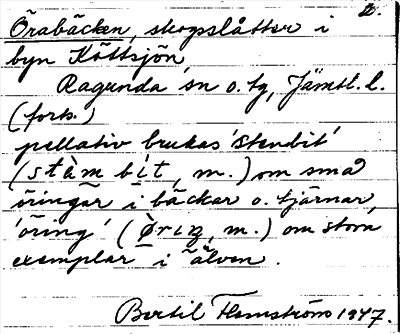 2.
Örabäcken, skogslåtter i
byn Köttsjön
Ragunda sn o. tg, Jämtl. l.
(forts.)
pellativ brukas 'stenbit'
(stàm bít, m.) om små
öringar i bäckar o. tjärnar,
'öring' (òriŋ, m.) om stora
exemplar i älven.
Bertil Flemström 1947.